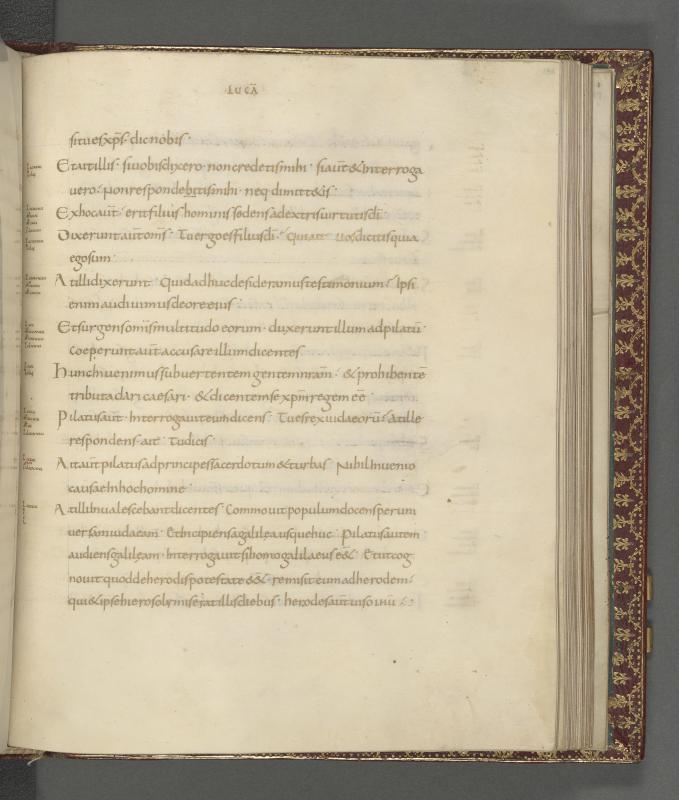 LUCĀ
situesxp̄s dic nobis
Etaitillis· sivobisdixero· noncredetismihi· siaūt&interroga
vero· nonrespondebitismihi· neq dimitt&is·
Exhocaūt· eritfilius hominis sedens adextrisvirtutisd̄i·
Dixeruntaūtom̄s· Tuergoesfiliusd̄i· Quiait· vosdicitisquia
egosum·
Atillidixerunt· Quidadhucdesideramustestimonium· Ipsi
enim audivimusdeoreeius·
Etsurgensom̄ismultitudo eorum· duxeruntillum adpilatū·
Coeperuntaūt accusareillumdicentes·
Huncinvenimussubvertentem gentemnr̄am· &prohibentē
tributa dari caesari· &dicentemse xp̄m regem eē·
Pilatusaūt· Interrogaviteumdicens· Tuesrexiudaeorū· Atille
respondens ait· Tudicis·
Aitaūtpilatusadprincipessacerdotum&turbas· Nihilinvenio
causaeinhochomine·
Atilliinvalescebantdicentes· Commovitpopulumdocensperuni
versamiudaeam· Etincipiensagalilea usquehuc· Pilatusautem
audiensgalileam· Interrogavitsihomogalilaeuseē&· Etutcog
novitquoddeherodispotestateeē&· remisit eumadherodem·
qui&ipsehierosolymiseratillisdiebus· herodesaūtvisoihū